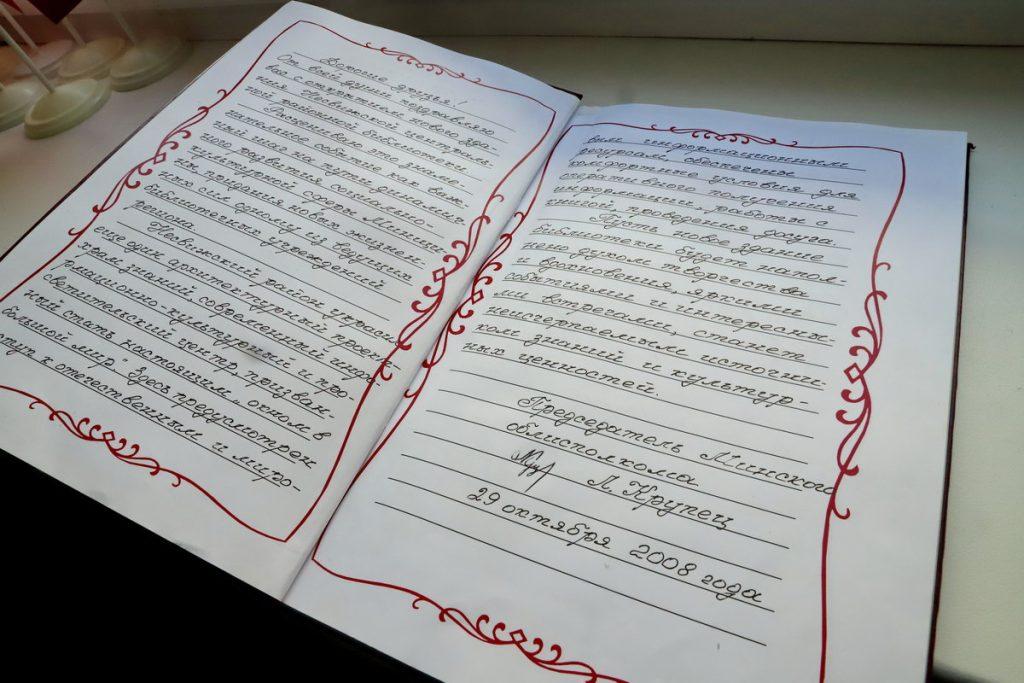 Дорогие друзья!
От всей души поздравляю
вас с открытием нового зда-
ния Несвижской централь-
ной районной библиотеки.
Расцениваю это знаме-
нательное событие как важ-
ный шаг на пути динамич-
ного развития социально-
культурной сферы Минщи-
ны, придания новых жизнен-
ных сил одному из ведущих
библиотечных учреждений
региона.
Несвижский район украсил
еще один архитектурный проект,
храм знаний, современный инфо-
рмационно-культурный и про-
светительский центр, призван-
ный стать настоящим „окном в
большой мир". Здесь предусмотрен
доступ к отечественным и миро-
вым информационным
ресурсам, обеспечены
комфортные условия для
оперативного получения
информации, работы с
книгой, проведения досуга.
Пусть новое здание
библиотеки будет напол-
нено духом творчества
и вдохновения, яркими
событиями и интересны-
ми встречами, станет
неисчерпаемым источни-
ком знаний и культур-
ных ценностей.
Председатель Минского
облисполкома
Л. Крупец
29 октября 2008 года